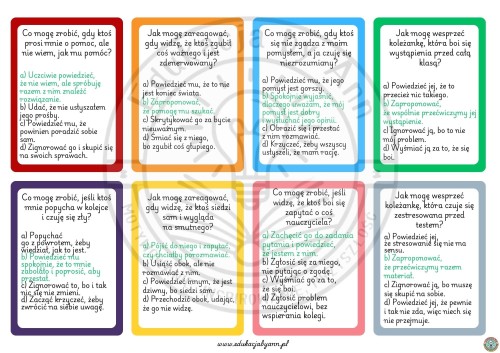 Co mogę zrobić, gdy ktoś
prosi mnie o pomoc, ale
nie wiem, jak mu pomóc?
a) Uczciwie powiedzieć,
że nie wiem, ale spróbuję
razem z nim znaleźć
rozwiązanie.
b) Udać, że nie usłyszałem
jego prośby.
c) Powiedzieć mu, że
powinien poradzić sobie
sam.
d) Zignorować go i skupić się
na swoich sprawach.
Jak mogę zareagować,
gdy widzę, że ktoś zgubił
coś ważnego i jest
zdenerwowany?
a) Powiedzieć mu, że to nie
jest koniec świata.
b) Zaproponować,
że pomogę mu szukać.
c) Skrytykować go za bycie
nieuważnym.
d) Śmiać się z niego,
bo zgubił coś głupiego.
Co mogę zrobić, gdy ktoś
się nie zgadza z moim
pomysłem, a ja czuję się
niezrozumiany?
a) Powiedzieć mu, że jego
pomysł jest gorszy.
b) Spokojnie wyjaśnić,
dlaczego uważam, że mój
pomysł jest dobry
i wysłuchać jego opinii.
c) Obrazić się i przestać
z nim rozmawiać.
d) Krzyczeć, żeby wszyscy
usłyszeli, że mam rację.
Jak mogę wesprzeć
koleżankę, która boi się
wystąpienia przed całą
klasą?
a) Powiedzieć jej, że to
przecież nic takiego.
b) Zaproponować,
że wspólnie przećwiczymy jej
wystąpienie.
c) Ignorować ją, bo to nie
mój problem.
d) Wyśmiać ją za to, że się
boi.
Co mogę zrobić, jeśli ktoś
mnie popycha w kolejce
i czuję się zły?
a) Popychać
go z powrotem, żeby
wiedział, jak to jest.
b) Powiedzieć mu
spokojnie, że to mnie
zabolało i poprosić, aby
przestał.
c) Zignorować to, bo i tak
nic się nie zmieni.
d) Zacząć krzyczeć, żeby
zwrócić na siebie uwagę.
Jak mogę zareagować,
gdy widzę, że ktoś siedzi
sam i wygląda
na smutnego?
a) Pójść do niego i zapytać,
czy chciałby porozmawiać.
b) Usiąść obok, ale nie
rozmawiać z nim.
c) Powiedzieć innym, że jest
dziwny, bo siedzi sam.
d) Przechodzić obok, udając,
że go nie widzę.
Co mogę zrobić, jeśli
widzę, że ktoś boi się
zapytać o coś
nauczyciela?
a) Zachęcić go do zadania
pytania i powiedzieć,
że jestem z nim.
b) Zgłosić się za niego,
nie pytając o zgodę.
c) Wyśmiać go za to,
że się boi.
d) Zgłosić problem
nauczycielowi, bez
wspierania kolegi.
Jak mogę wesprzeć
koleżankę, która czuje się
zestresowana przed
testem?
a) Powiedzieć jej,
że stresowanie się nie ma
sensu.
b) Zaproponować,
że przećwiczymy razem
materiał.
c) Ignorować ją, bo muszę
się skupić na sobie.
d) Powiedzieć jej, że pewnie
i tak nie zda, więc niech się
nie przejmuje.
www.edukacjabyann.pl